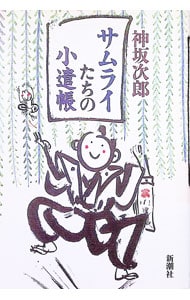 神坂次郎
サムライ
たちの
小遣帳
新潮社